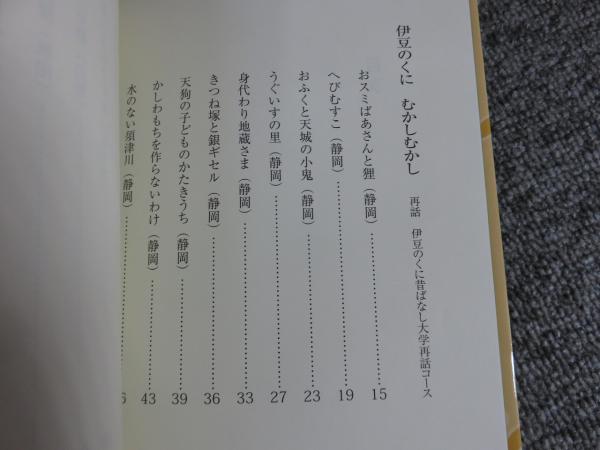 伊豆のくに　むかしむかし
再話　伊豆のくに昔ばなし大学再話コース
おスミばあさんと狸（静岡）……………15
へびむすこ（静岡）……………19
おふくと天城の小鬼（静岡）……………23
うぐいすの里（静岡）……………27
身代わり地蔵さま（静岡）……………33
きつね塚と銀ギセル（静岡）……………36
天狗の子どものかたきうち（静岡）……………39
かしわもちを作らないわけ（静岡）……………43
水のない須津川（静岡）……………6